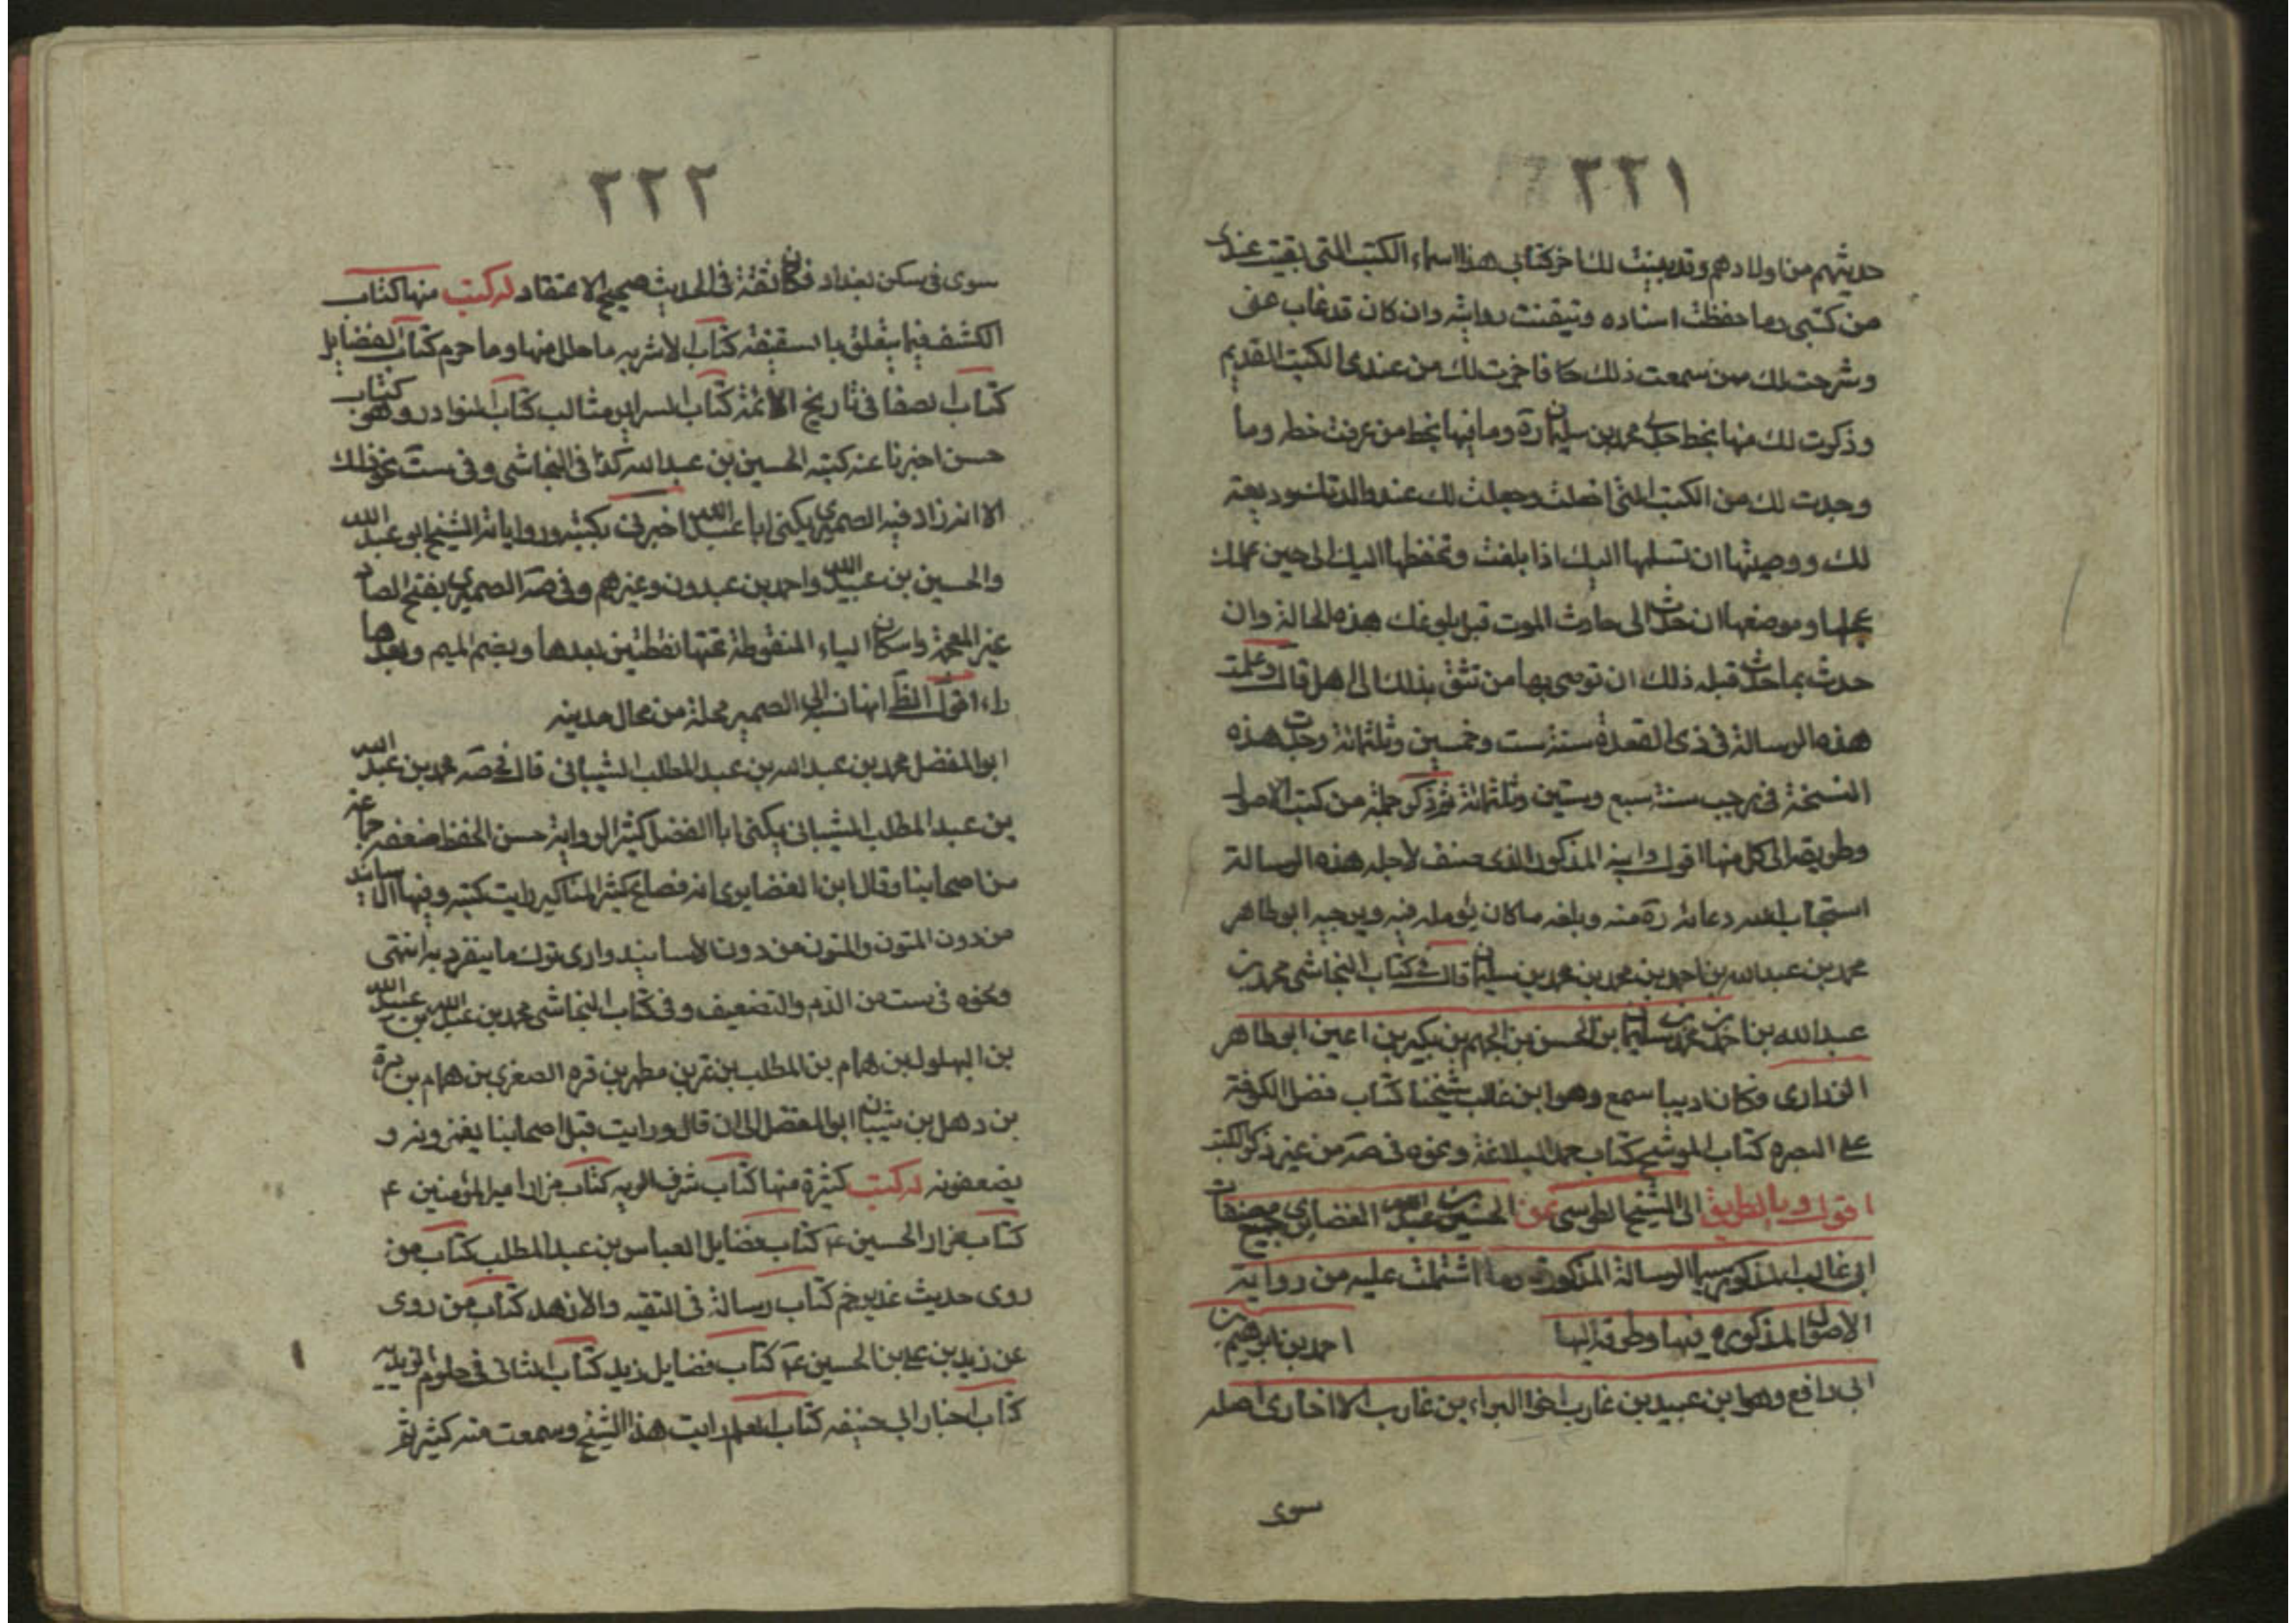 ٢٢١
حديثهم من اولادهم وقد بينت لك اخر كتابى هذا اسماء الكتب التى بقيت عندى
من كتبى وما حفظت اسناده وتيقنت روايته وان كان قد غاب عنى
وشرحت لك ممن سمعت ذلك كا فاخرت لك من عندى الكتب القديم
وذكرت لك منها بخط جدى محمد بن سليمان ره وما فيها بخط من عرفت خطه وما
وجدت لك من الكتب التى اخلت وجعلت لك عند والدتك وديعة
لك ووصيتها ان تسلمها اليك اذا بلغت وتحفظها اليك الى حين عملك
بمحلها وموضعها ان حدث الى حادث الموت قبل بلوغك هذه الحالة وان
حدث بما حدث قبله ذلك ان توصى بها من تثق بذلك الى اهل قال وعلمت
هذه الرسالة فى ذى القعدة سنة ست وخمسين وثلثمائة وجددت هذه
النسخة فى رجب سنة سبع وستين وثلثمائة ثم ذكر جملة من كتب الاصول
وطريقه الى كل منها اقول وابنه المذكور الذى صنف لاجله هذه الرسالة
استجاب الله دعائه ره منه وبلغه ما كان يؤمله فيه ويرجيه ابو طاهر
محمد بن عبدالله بن احمد بن محمد بن محمد بن سليمان قال فى كتاب النجاشى محمد بن
عبدالله بن احمد بن محمد بن سليمان بن الحسن بن الجهم بن بكير بن اعين ابو طاهر
الزرارى وكان اديبا سمع وهو ابن غالب شيخنا كتاب فضل الكوفة
على البصره كتاب الموشح كتاب جمل البلاغة ونحوه فى صه من غير ذكر الكتب
اقول وبالطريق الى الشيخ الطوسى عن الحسين بن عبيد الله الغضايرى جميع مصنفات
ابى غالب المذكور سيما الرسالة المذكورة وما اشتملت عليه من رواية
الاصول المذكوره فيها وطرقه اليها احمد بن ابراهيم بن
ابى رافع وهو ابن عبيد بن غارب اخى البراء بن غارب الا اخارى اصله
سوى
٢٢٢
سوى فى سكن بغداد فكان ثقة فى الحديث صحيح الاعتقاد له كتب منها كتاب
الكشف فيما يتعلق بالسقيفه كتاب الاشربه ما حلل منها وما حرم كتاب الفضايل
كتاب الصفا فى تاريخ الائمة كتاب السراير مثالب كتاب النوادر وهو كتاب
حسن اخبرنا عنه كتبه الحسين بن عبدالله كذا فى النجاشى وفى ست نحو ذلك
الا انه زاد فيه الصميرى يكنى ابا عبد الله اخبرنى بكتبه ورواياته الشيخ ابو عبد الله
والحسين بن عبيد الله واحمد بن عبدون وغيرهم وفى صه الصميرى بفتح الصاد
غير المعجمة واسكان الياء المنقوطة تحتها نقطتين بعدها وبضم الميم وبعدها
راء اقول الظ انها نسبة الى الصمير محلة من محال مدينه
ابو المفضل محمد بن عبدالله بن عبد المطلب الشيبانى قال فى صه محمد بن عبد الله
بن عبد المطلب الشيبانى يكنى ابا الفضل كثير الرواية حسن الحفظ ضعفه جماعة
من اصحابنا وقال ابن الغضايرى انه فصاع كثير المناكير رايت كتبه وفيها الاسانيد
من دون المتون والمتون من دون الاسانيد وارى ترك ما ينفرد به انتهى
ونحوه فى ست من الذم والتضعيف وفى كتاب النجاشى محمد بن عبد الله بن عبيد الله
بن البهلول بن همام بن المطلب بن بحر بن مطر بن قره الصغرى بن همام بن مرة
بن دهل بن شيبان ابو المفضل الى ان قال ورايت قبل اصحابنا يغمزونه و
يضعفونه له كتب كثيرة منها كتاب شرف التربه كتاب مزار امير المؤمنين ع
كتاب مزار الحسين ع كتاب فضايل العباس بن عبد المطلب كتاب من
روى حديث غدير خم كتاب رسالة فى التقيه والاذهد كتاب من روى
عن زيد بن على بن الحسين ع كتاب فضايل زيد كتاب الثانى فى علوم الزيديه
كتاب اخبار ابى حنيفه كتاب العلم رايت هذا الشيخ وسمعت منه كثير ثم